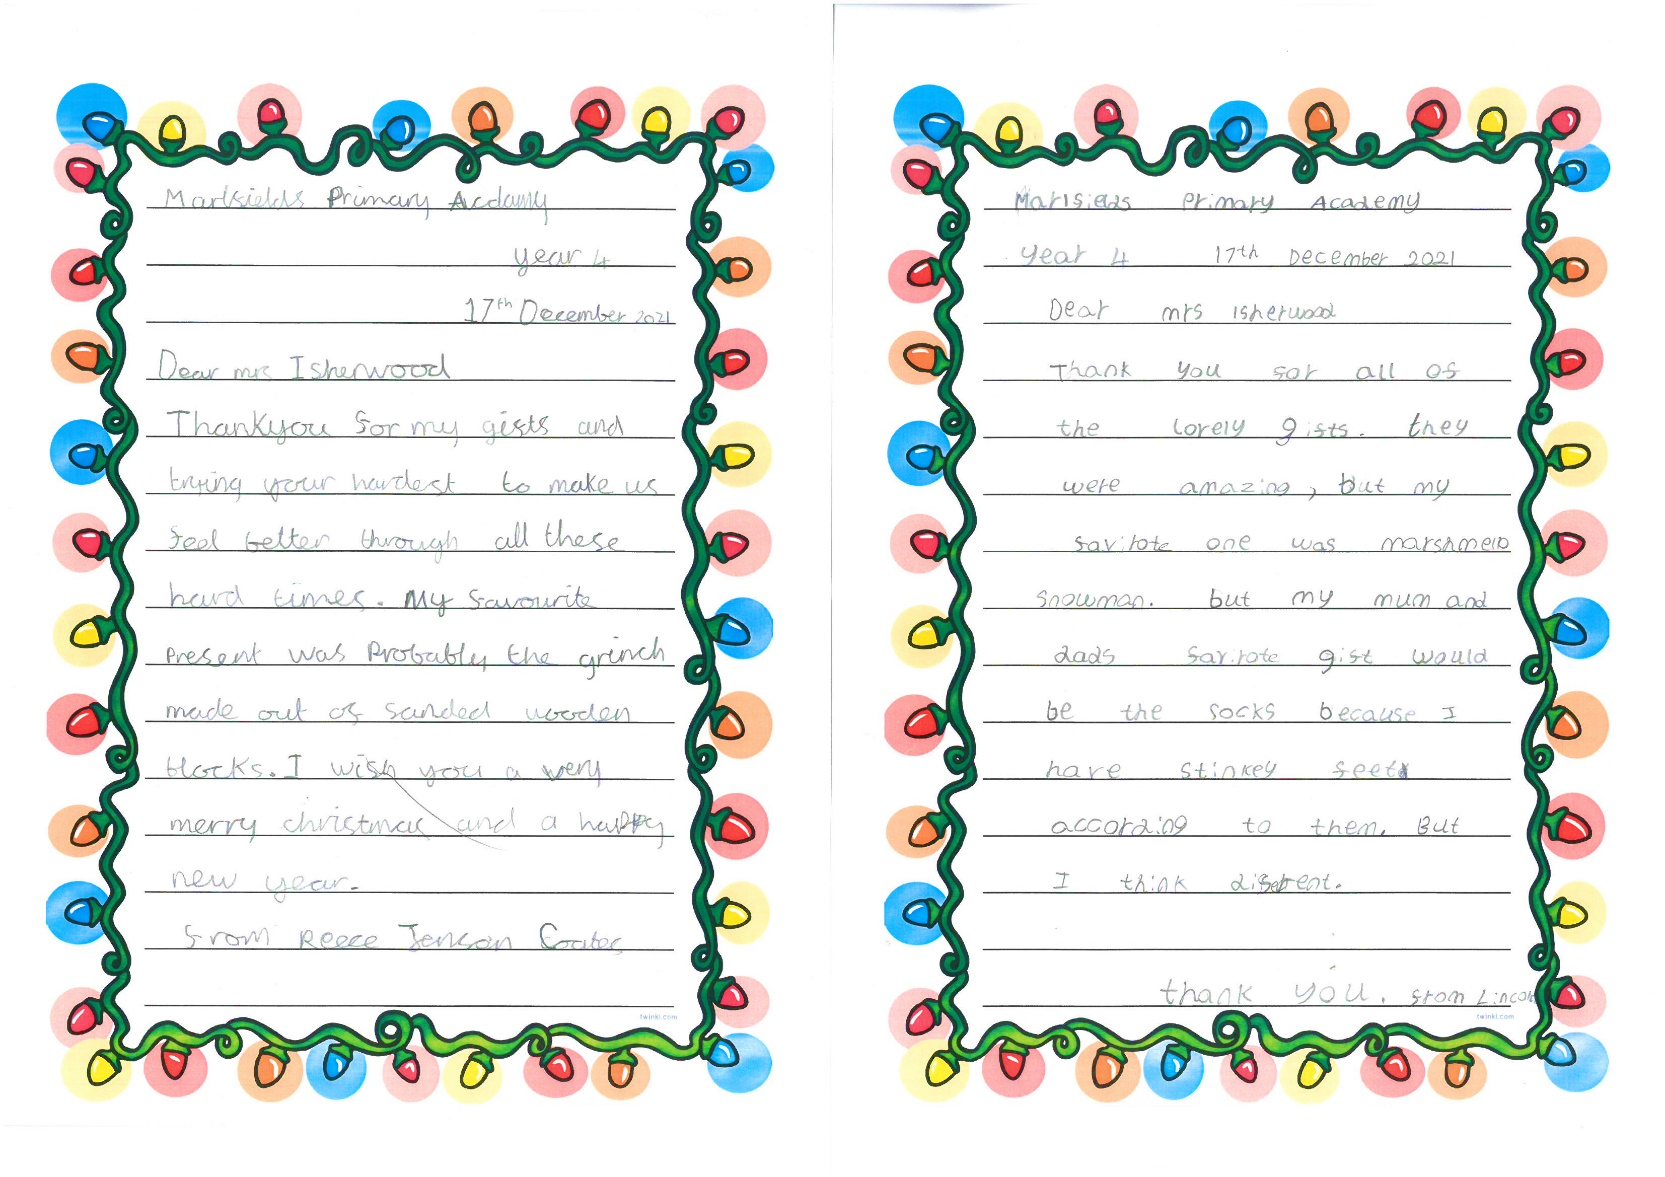 Marlfields Primary Acdamy
year 4
17th December 2021
Dear mrs Isherwood
Thankyou for my gifts and
trying your hardest to make us
feel better through all these
hard times. My favourite
present was Probably the grinch
made out of sanded wooden
blocks. I wish you a very
merry christmas and a happy
new year.
from Reece Jenson Coates
twinkl.com
Marlfields Primary Academy
year 4 17th December 2021
Dear mrs Isherwood
Thank you for all of
the lovely gifts. they
were amazing, but my
favirote one was marshmelo
snowman. but my mum and
dads favirote gift would
be the socks because I
have stinkey feet
according to them. But
I think diferent.
thank you. from Lincoln
twinkl.com